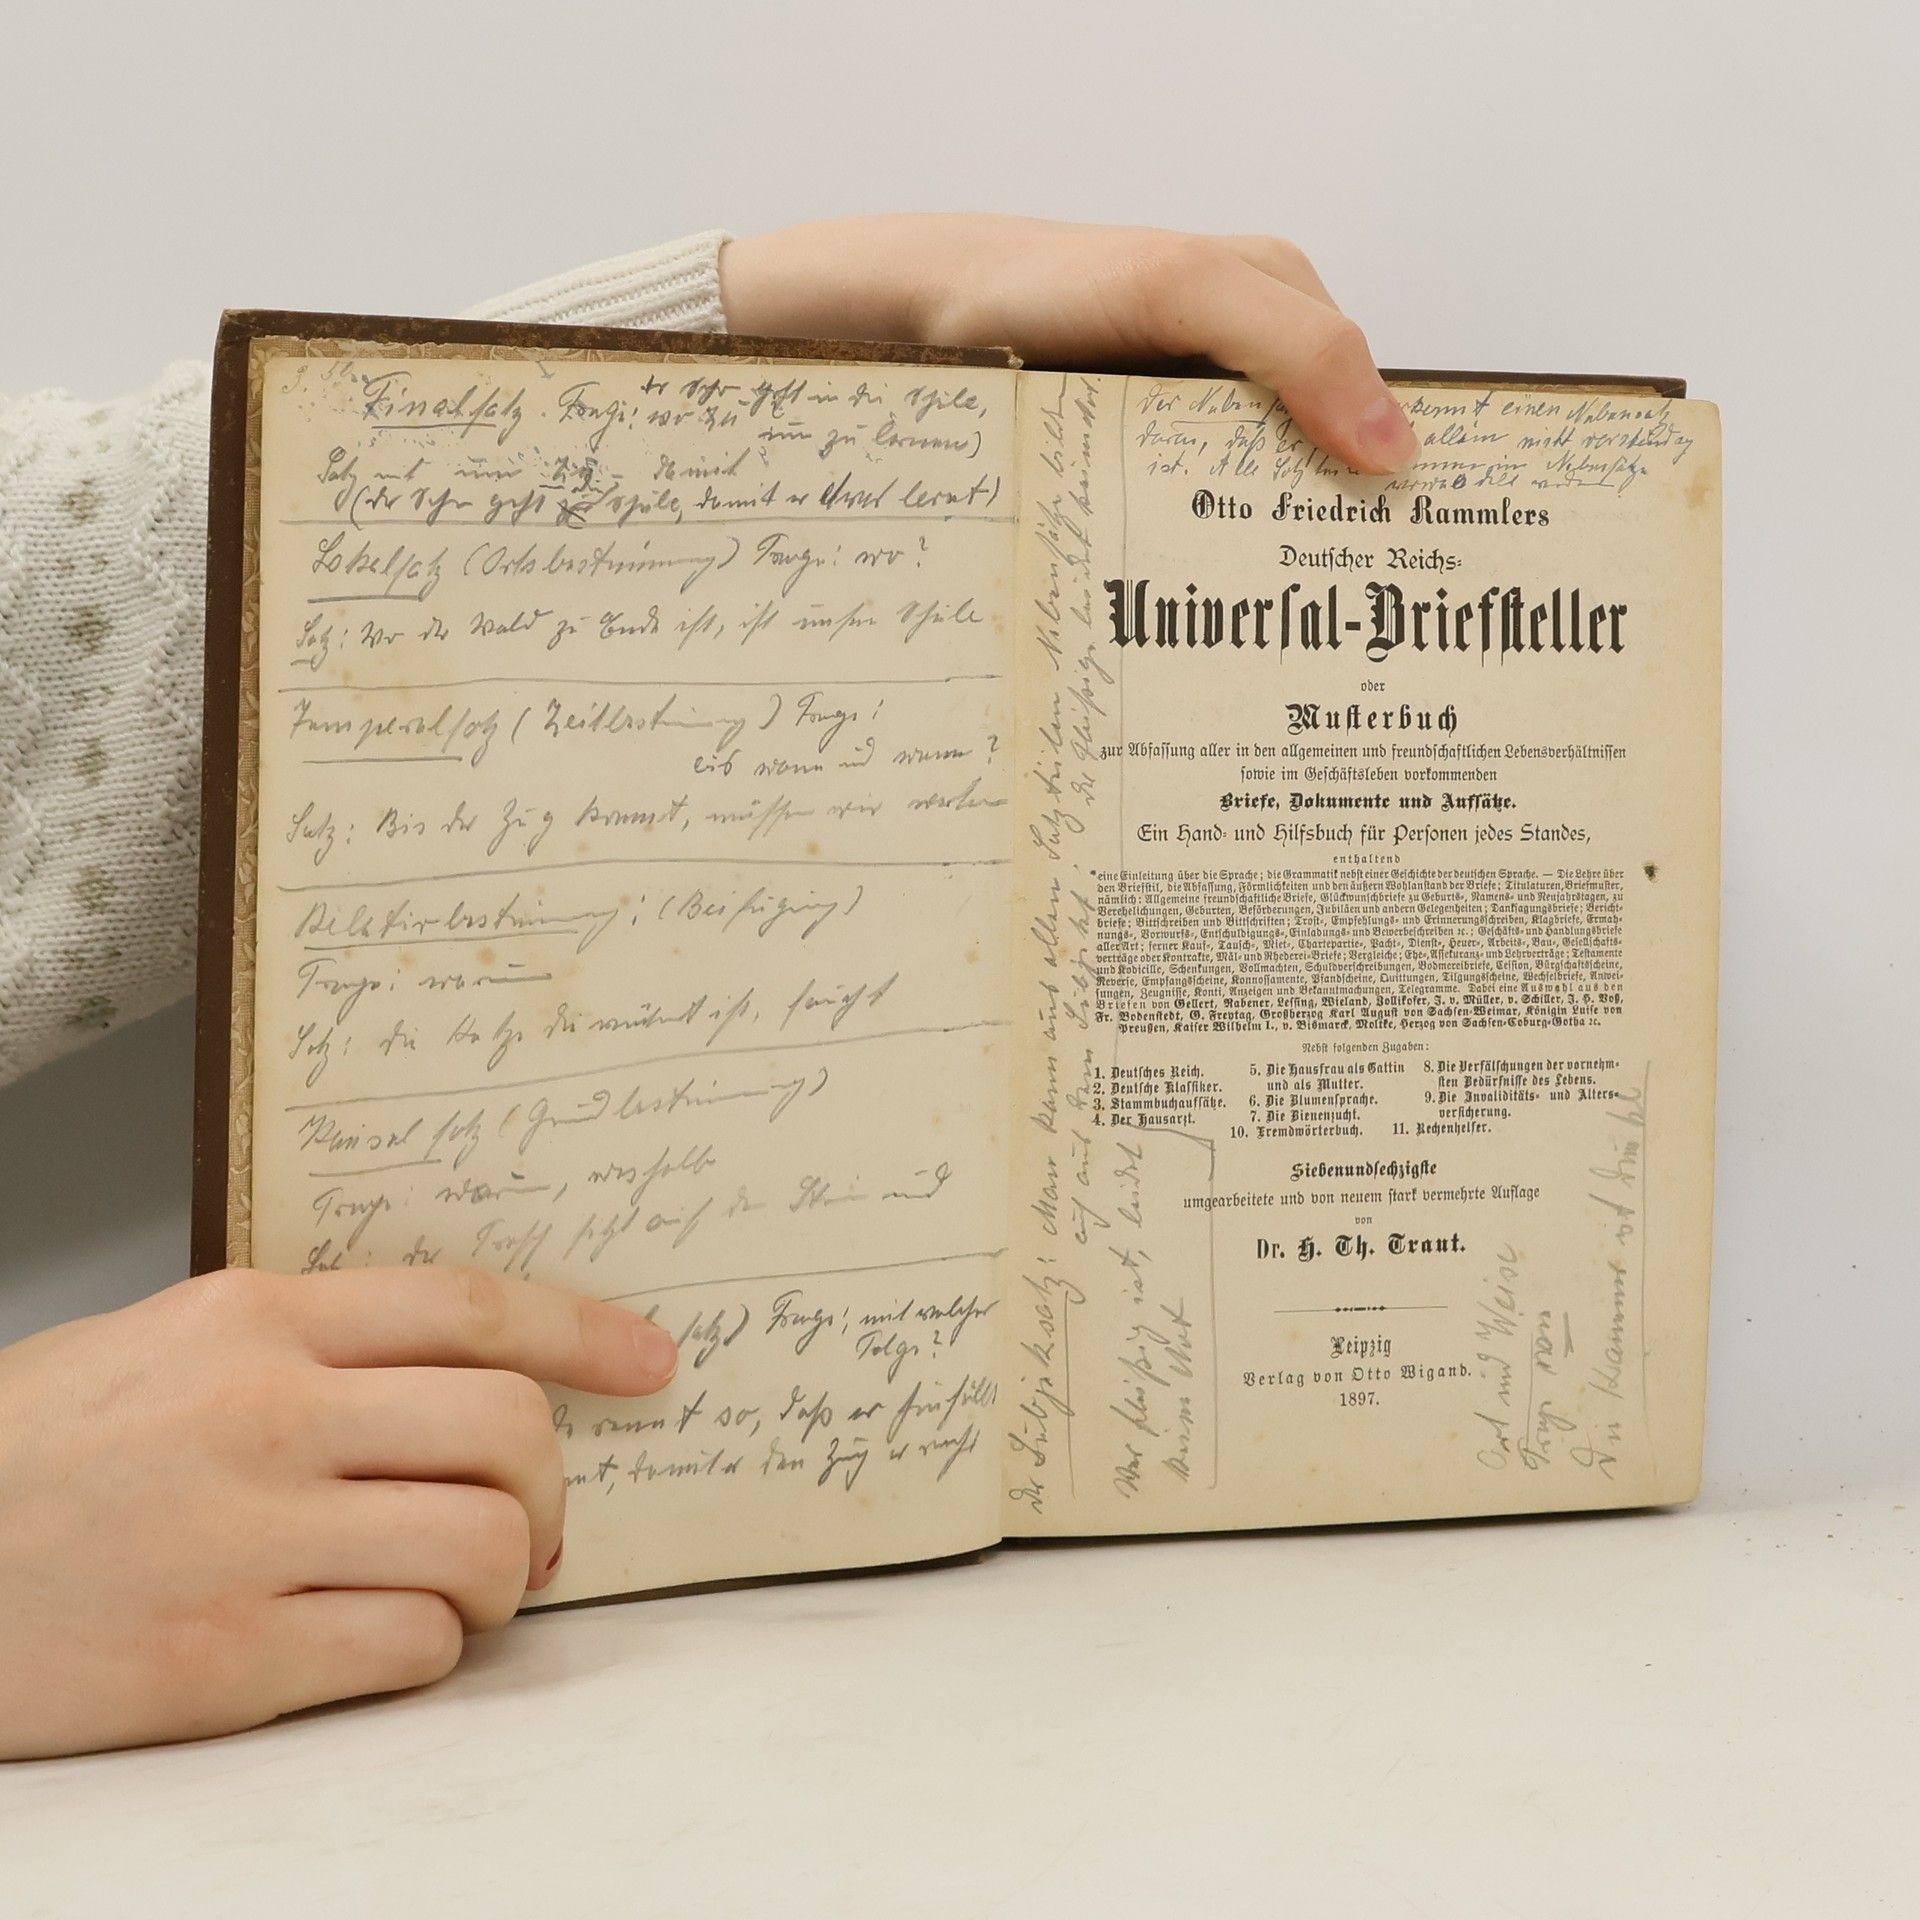 Finalsatz. Frage: wo zu
geht in die Schule,
um zu lernen)
Satz mit um zu - damit
(der Sohn geht die Schule, damit er etwas lernt)
Lokalsatz (Ortsbestimmung) Frage: wo?
Satz: Wo der Wald zu Ende ist, ist unsere Schule
Temperalsatz (Zeitbestimmung) Frage:
bis wann und wann?
Satz: Bis der Zug kommt, müssen wir warten
Relativbestimmung: (Beifügung)
Frage: warum
Satz: die Katze die wütend ist, faucht
Kausal satz (Grundbestimmung)
Frage: warum, weshalb
Satz: der Frosch sitzt auf dem Stein und
satz) Frage: mit welcher
Folge?
rennt so, daß er hinfällt
damit er den Zug erreicht
Der Subjeksatz: Man kann aus allen Satzteilen Nebensätze bilden
auch aus dem Subjekt: der Fleißige leidet keine Not.
Wer fleißig ist, leidet
keine Not
Der Nebensatz erkennt einen Nebensatz
daran, daß er allein nicht verständig
ist. Alle Satzteile in Nebensätze
werden
Otto Friedrich Rammlers
Deutscher Reichs-
Universal-Briefsteller
oder
Musterbuch
zur Abfassung aller in den allgemeinen und freundschaftlichen Lebensverhältnissen
sowie im Geschäftsleben vorkommenden
Briefe, Dokumente und Aufsätze.
Ein Hand- und Hilfsbuch für Personen jedes Standes,
enthaltend
eine Einleitung über die Sprache; die Grammatik nebst einer Geschichte der deutschen Sprache. — Die Lehre über
den Briefstil, die Abfassung, Förmlichkeiten und den äußern Wohlanstand der Briefe; Titulaturen, Briefmuster,
nämlich: Allgemeine freundschaftliche Briefe, Glückwunschbriefe zu Geburts-, Namens- und Neujahrstagen, zu
Verehelichungen, Geburten, Beförderungen, Jubiläen und andern Gelegenheiten; Danksagungsbriefe; Bericht-
briefe; Bittschreiben und Bittschriften; Trost-, Empfehlungs- und Erinnerungsschreiben, Klagbriefe, Ermah-
nungs-, Vorwurfs-, Entschuldigungs-, Einladungs- und Bewerbeschreiben ꝛc.; Geschäfts- und Handlungsbriefe
aller Art; ferner Kauf-, Tausch-, Miet-, Chartepartie-, Pacht-, Dienst-, Heuer-, Arbeits-, Bau-, Gesellschafts-
verträge oder Kontrakte, Mäl- und Rhederei-Briefe; Vergleiche; Ehe-, Assekuranz- und Lehrverträge; Testamente
und Kodicille, Schenkungen, Vollmachten, Schuldverschreibungen, Bodmereibriefe, Cession, Bürgschaftsscheine,
Reverse, Empfangsscheine, Konnossamente, Pfandscheine, Quittungen, Tilgungsscheine, Wechselbriefe, Anwei-
sungen, Zeugnisse, Konti, Anzeigen und Bekanntmachungen, Telegramme. Dabei eine Auswahl aus den
Briefen von Gellert, Rabener, Lessing, Wieland, Zollikofer, J. v. Müller, v. Schiller, J. H. Voß,
Fr. Bodenstedt, G. Freytag, Großherzog Karl August von Sachsen-Weimar, Königin Luise von
Preußen, Kaiser Wilhelm I., v. Bismarck, Moltke, Herzog von Sachsen-Coburg-Gotha ꝛc.
Nebst folgenden Zugaben:
1. Deutsches Reich.
2. Deutsche Klassiker.
3. Stammbuchaufsätze.
4. Der Hausarzt.
5. Die Hausfrau als Gattin
und als Mutter.
6. Die Blumensprache.
7. Die Bienenzucht.
8. Die Verfälschungen der vornehm-
sten Bedürfnisse des Lebens.
9. Die Invaliditäts- und Alters-
versicherung.
10. Fremdwörterbuch. 11. Rechenhelfer.
Siebenundsechzigste
umgearbeitete und von neuem stark vermehrte Auflage
von
Dr. H. Th. Traut.
Leipzig
Verlag von Otto Wigand.
1897.
Art und Weise
Frage von
Die Kammer ist